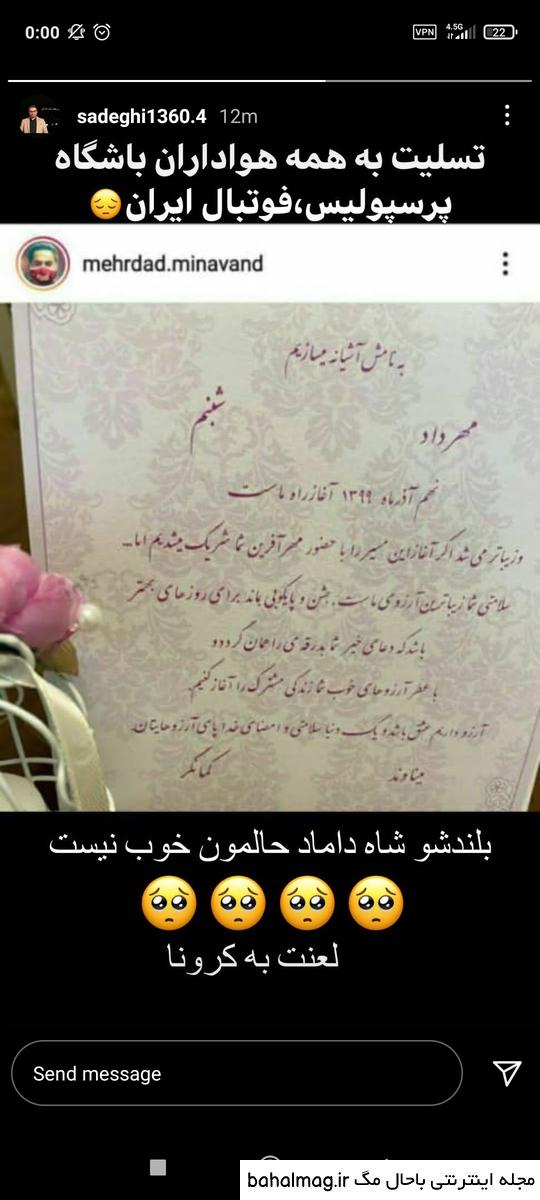 0:00
VPN 4.5G 22
sadeghi1360.4 12m
تسلیت به همه هواداران باشگاه
پرسپولیس،فوتبال ایران😔
mehrdad.minavand
به نامش آشیانه میسازیم
شبنم
مهرداد
نهم آذرماه ۱۳۹۹ آغاز راه ماست
وزیباتر می شد اگر آغاز این مسیر را با حضور مهرآفرین شما شریک میشدیم اما...
سلامتی شما زیباترین آرزوی ماست. جشن و پایکوبی بماند برای روزهای بهتر
باشد که دعای خیر شما بدرقه ی راهمان گردد و
با عطر آرزوهای خوب شما زندگی مشترک را آغاز کنیم.
آرزو داریم عشق باشد و یک دنیا سلامتی و امضای خدا پای آرزوهایتان.
میناوند
کمانگر
بلندشو شاه داماد حالمون خوب نیست
🥺🥺🥺🥺
لعنت به کرونا
Send message
مجله اینترنتی باحال مگ bahalmag.ir